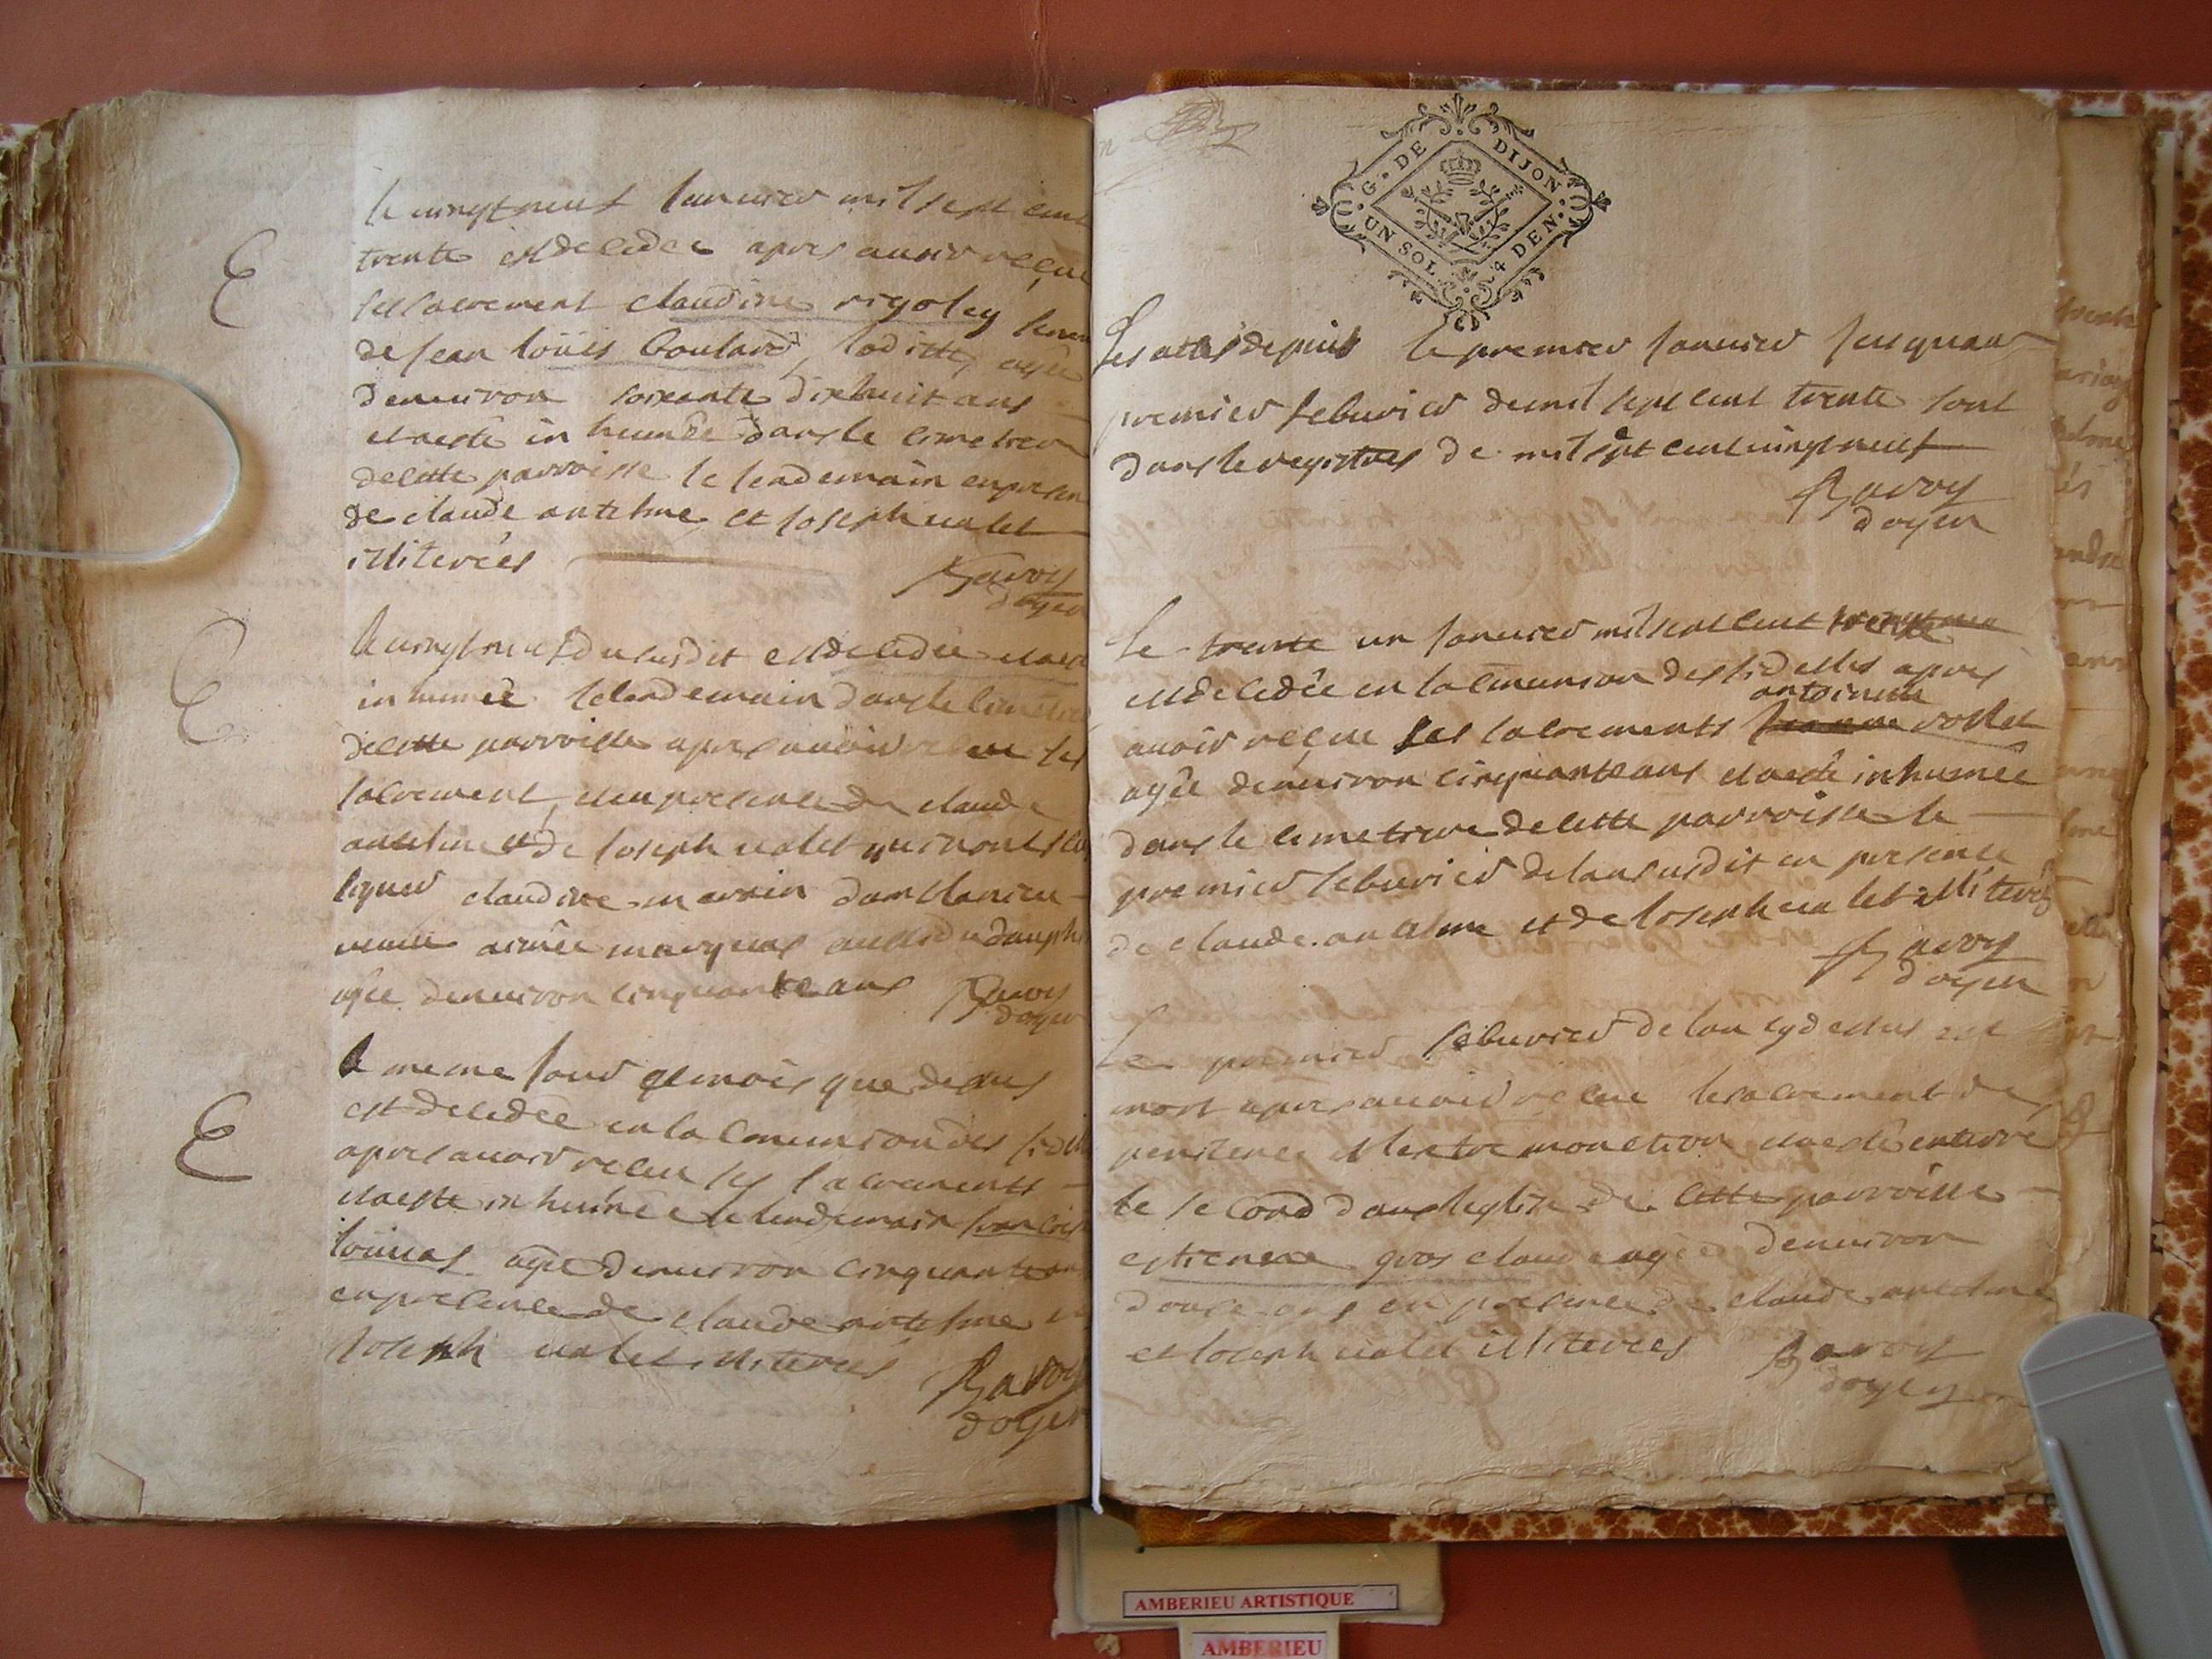 E
le vingt neuf Januier mil sept cent
trente est decedée apres auoir reçue
ses sacrement claudine rigoley
de Jean loüis boulard, laditte agée
denuiron soixante dixhuit ans
et a esté in humée dans le cimetiere
de cette parroisse le lendemain en presen
de claude antelme et Joseph ualet
illiterées
Sauoy
doyen
E
le vingt neuf du susdit est decedée et a esté
in humée le lendemain dans le cimetiere
de cette parroisse apres auoir receu ses
sacrement, et en presence de claude
antelme et de Joseph ualet qui n'ont sceu
signer claudine
ueuue aimée
agée denuiron cinquante ans
Sauoy
doyen
E
le meme Jour et mois que dessus
est decedée en la comunion des fidel
apres auoir receu ses sacrements
et a esté in humée le lendemain francoise
agée denuiron cinquante ans
en presence de claude antelme et
Joseph ualet illiterées
Sauoy
doyen
G. DE DIJON
UN SOL 4 DEN.
Les actes depuis le premier Januier Jusquau
premier feburier de mil sept cent trente sont
dans le registres de mil sept cent vingt neuf
Sauoy
doyen
Le trente un Januier mil sept cent trente
est decedée en la comunion des fidelles apres
antoinette
auoir reçue ses sacrements
agée denuiron cinquante ans et a esté inhumée
dans le cimetiere de cette parroisse le
premier feburier de lan susdit en presence
de claude antelme et de Joseph ualet illiterées
Sauoy
doyen
Le premier feburier de lan cy dessus est
mort apres auoir receu le sacrement de
penitence et lextreme onction et a esté enterré
le second dans leglise de cette parroisse
estienne gros claude agée denuiron
douze ans en presence de claude antelme
et Joseph ualet illiterées
Sauoy
doyen
AMBERIEU ARTISTIQUE
AMBERIEU